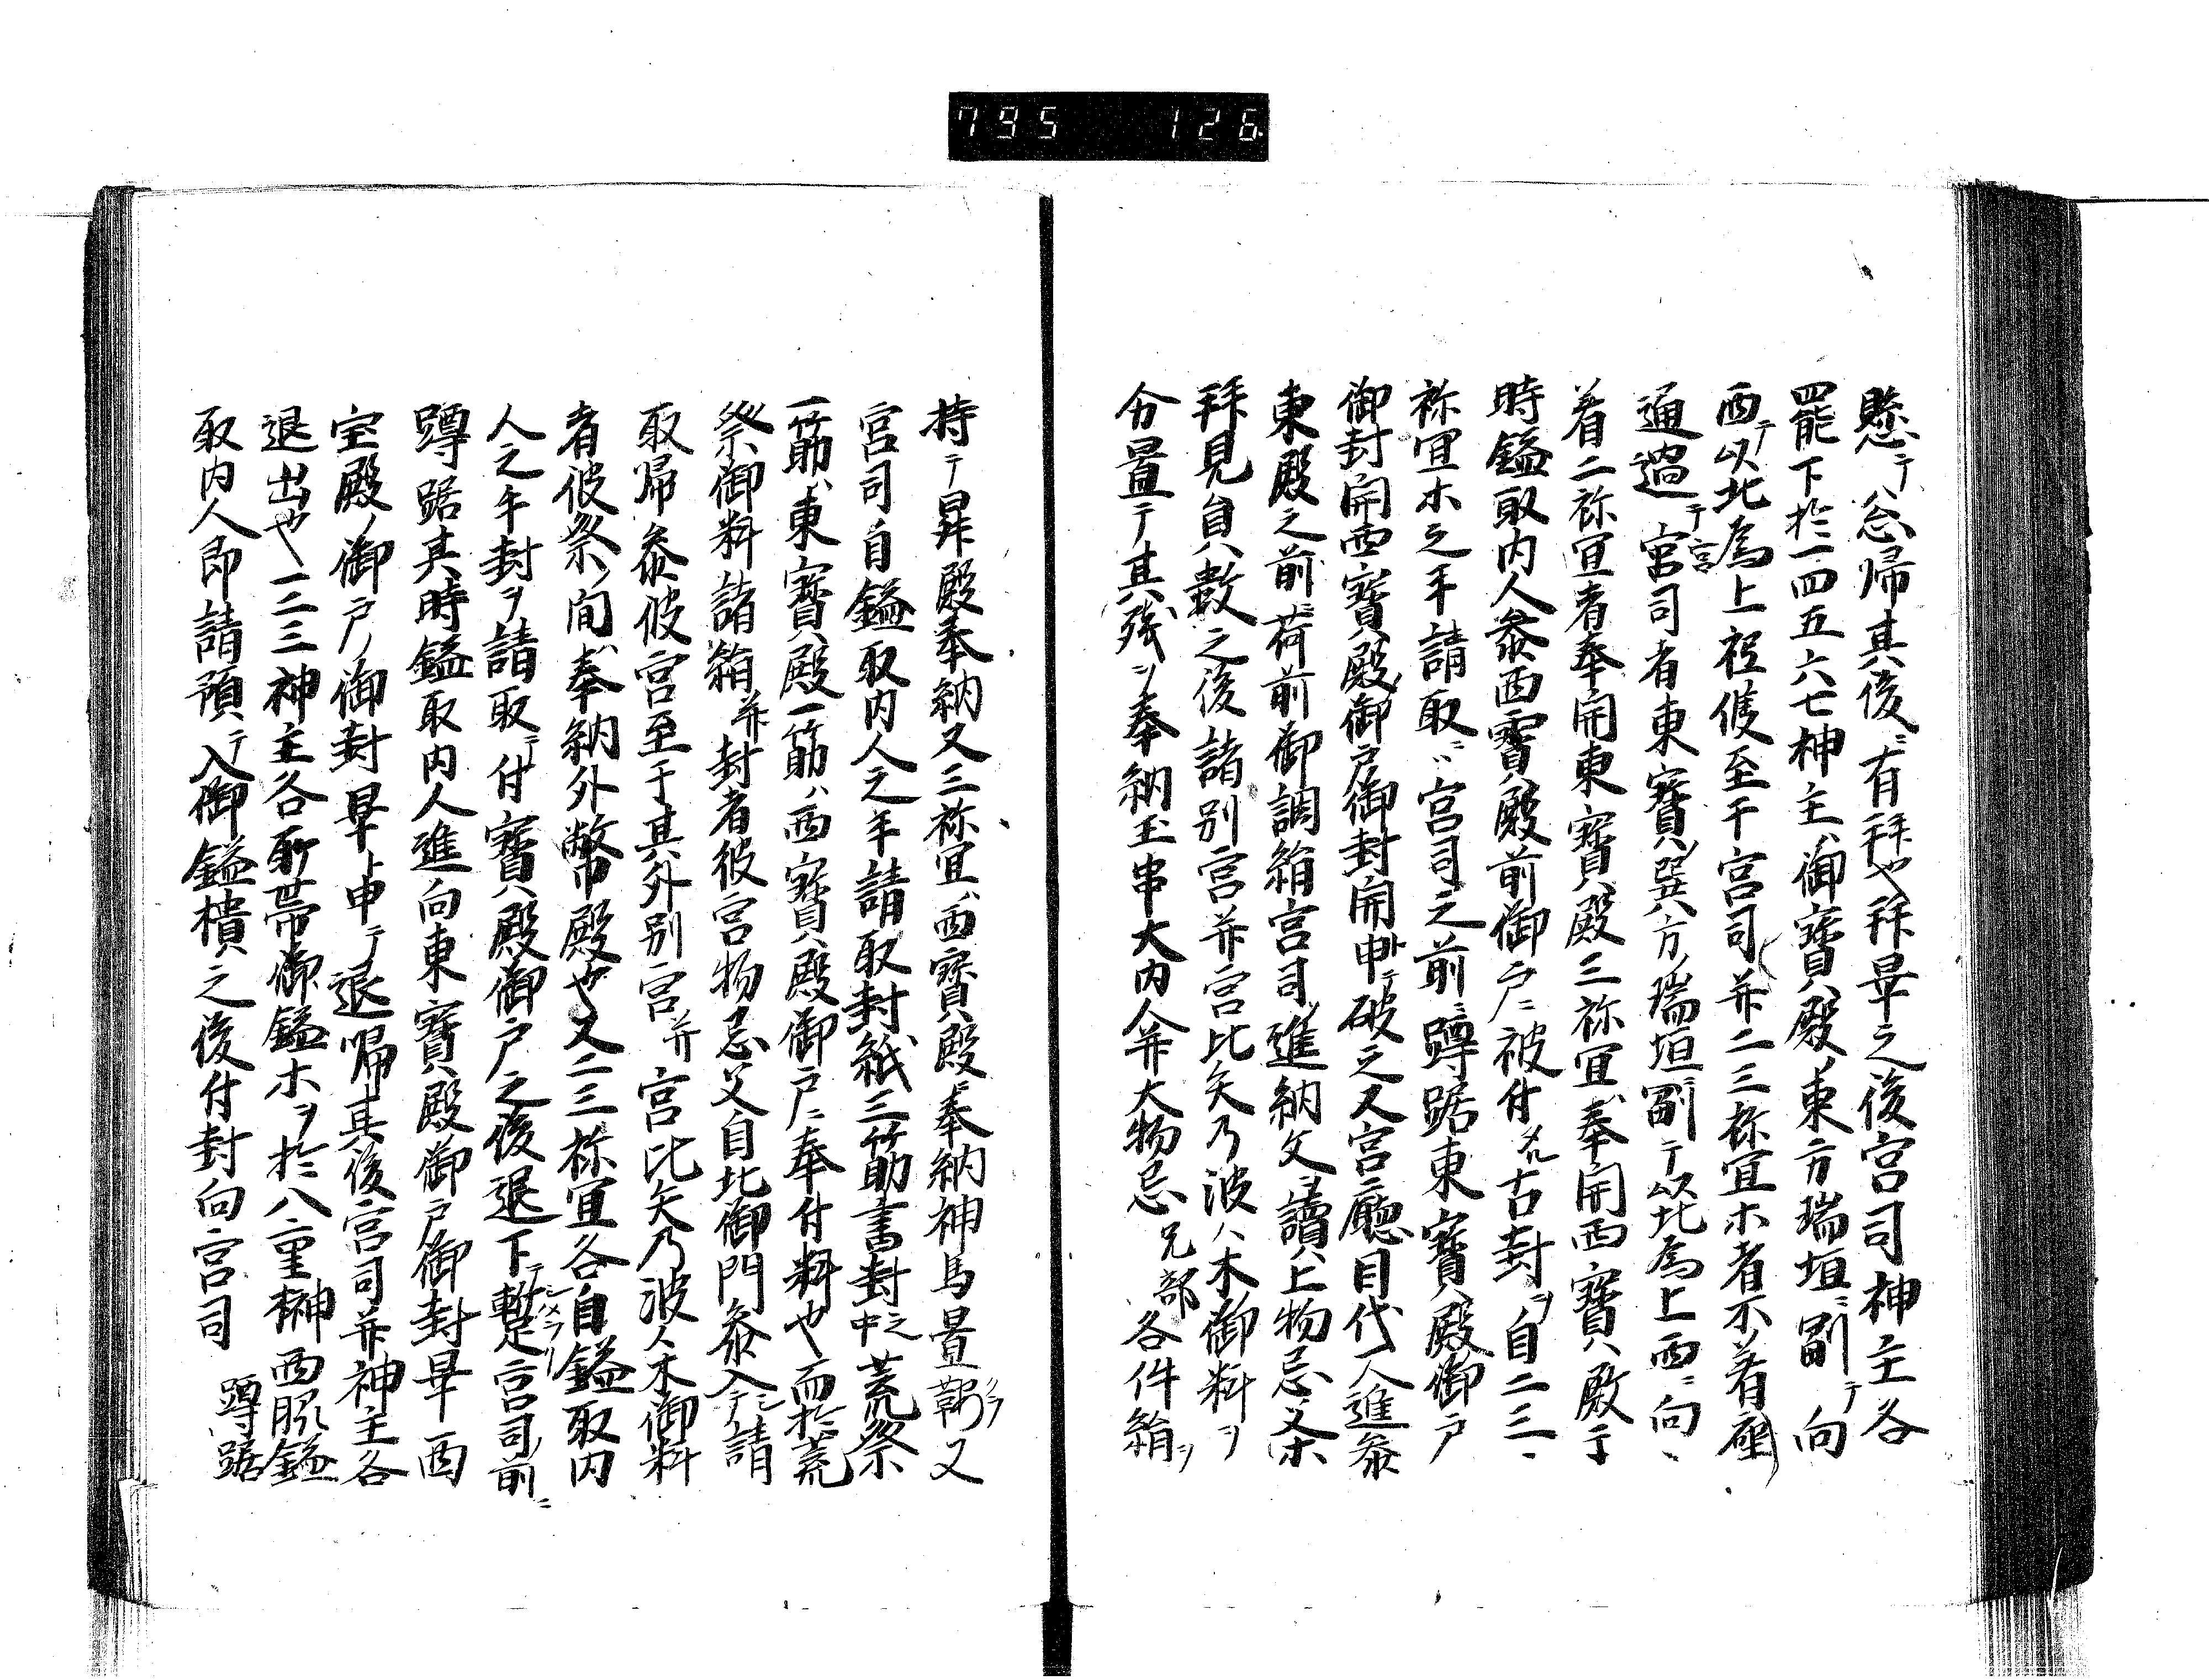 795 126
懸テ忩帰其後ニ有拜也拜畢之後宮司神主各
罷下於一四五六七神主ハ御寶殿ノ東方瑞垣ニ副テ向
西テ以北為上祗候至干宮司并二三祢宜ホ者不着座
通過テ宮司者東寶ノ巽方ノ瑞垣ニ副テ以北為上西ニ向
着二祢宜者奉開東寶殿三祢宜ハ奉開西寶殿于
時鎰取内人参西寶殿前御戸ニ被付タル古封ヲ自二三
祢宜ホ之手請取ニ宮司之前ニ蹲踞東寶殿御戸
御封開西寶殿御戸御封開ト申テ破之又宮廳目代一人進参
東殿之前ニ荷前御調絹宮司ノ進納文ヲ讀上物忌父ホ
拜見員數之後諸別宮并宮比矢乃波ハ木御料ヲ
分置テ其残ヲ奉納玉串大内人并大物忌兄部各件絹ヲ
持テ昇殿奉納又三祢宜ハ西寶殿ニ奉納神馬置鞍又
宮司自鎰取内人之手請取封紙三筋書封之中荒祭
一筋ハ東寶殿一筋ハ西寶殿御戸ニ奉付料也而於荒
祭御料諸絹并封者彼宮物忌父自北御門参入テ請
取帰参彼宮至于其外別宮并宮比矢乃波ハ木御料
者彼祭ノ間ハ奉納外幣殿也又二三祢宜各自鎰取内
人之手封ヲ請取テ付寶殿御戸之後退下テ暫ク宮司ノ前ニ
蹲踞其時鎰取内人進向東寶殿御戸御封畢西
宝殿ノ御戸ノ御封畢ト申テ退帰其後宮司并神主各
退出也一二三神主各所帯御鎰ホヲ於八重榊西脇鎰
取内人即請預テ入御鎰樻之後付封向宮司蹲踞